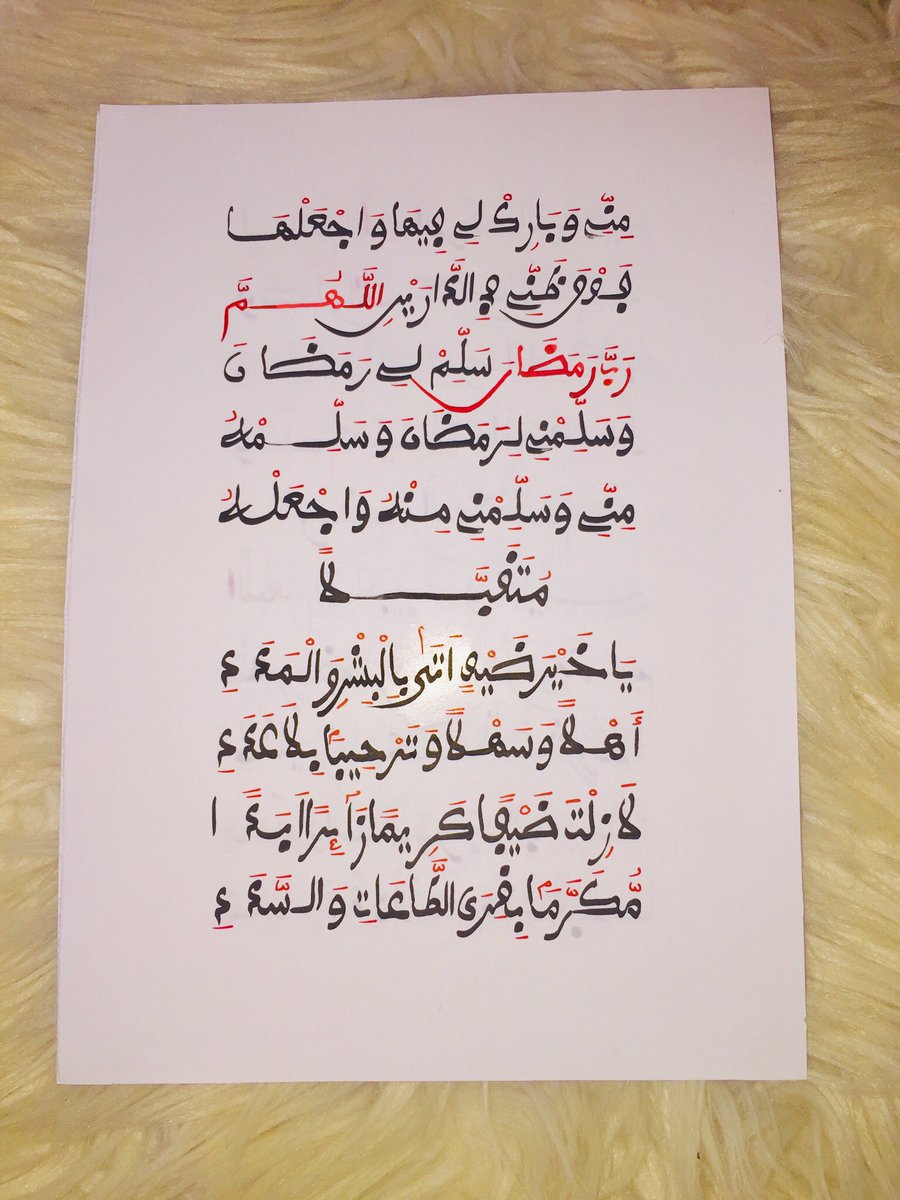 مِنِّي وَبَارِكْ لِي فِيهَا وَاجْعَلْهَا
فَوْقَ ظَنِّي فِي الدَّارَيْنِ اللَّهُمَّ
رَبَّ رَمَضَانَ سَلِّمْ لِي رَمَضَانَ
وَسَلِّمْنِي لِرَمَضَانَ وَسَلِّمْهُ
مِنِّي وَسَلِّمْنِي مِنْهُ وَاجْعَلْهُ
مُتَقَبَّلًا
يَا خَيْرَ ضَيْفٍ اَتَى بِالْبِشْرِ وَالْمَدَدِ
أَهْلًا وَسَهْلًا وَتَرْحِيبًا بِلَا عَدَدِ
لَا زِلْتَ ضَيْفًا كَرِيمًا زَآئِرًا اَبَدًا
مُّكَرَّمًا بِقِرَى الطَّاعَاتِ وَالسَّدَدِ